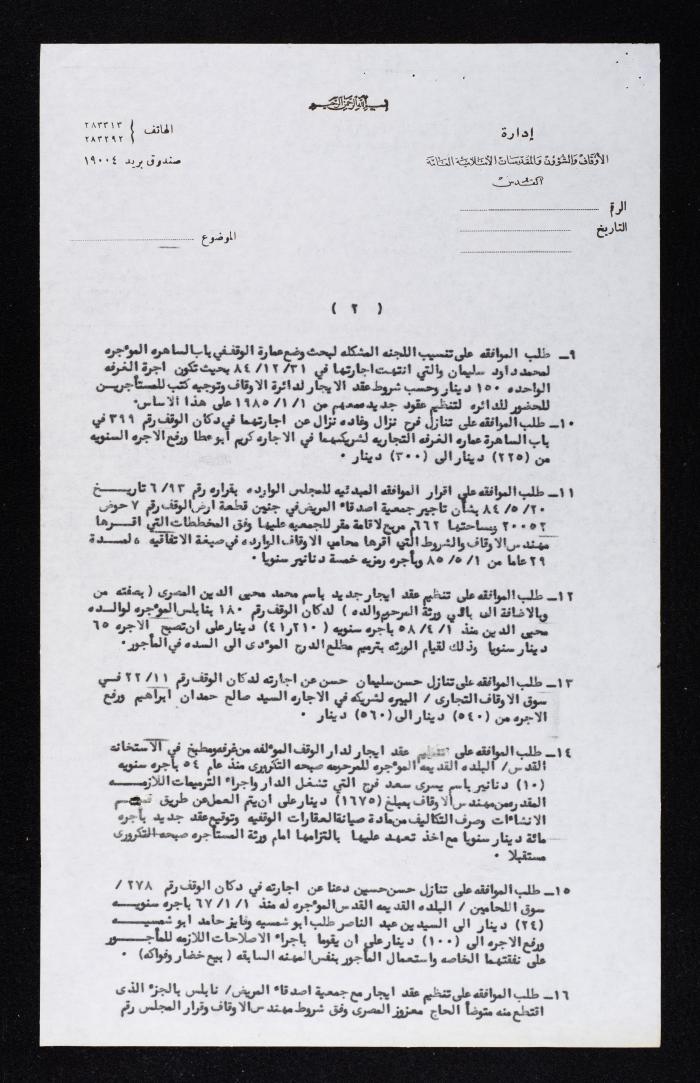 بسم الله الرحمن الرحيم
إدارة
الأوقاف والشؤون والمقدسات الإسلامية العامة
القدس
الهاتف { ٢٨٣٣١٣
٢٨٣٢٩٢
صندوق بريد ١٩٠٠٤
الرقم
التاريخ
الموضوع
( ٢ )
٩ــ طلب الموافقه على تنسيب اللجنه المشكله لبحث وضع عمارة الوقف في باب الساهره الموءجره
لمحمد داود سليمان والتي انتهت اجارتها في ٨٤/١٢/٣١ بحيث تكون اجرة الغرفه
الواحده ١٥٠ دينار وحسب شروط عقد الايجار لدائرة الاوقاف وتوجيه كتب للمستأجرين
للحضور للدائره لتنظيم عقود جديده معهم من ١٩٨٥/١/١ على هذا الاساس.
١٠ــ طلب الموافقه على تنازل فرح نزال وغاده نزال عن اجارتهما في دكان الوقف رقم ٣٩٩ في
باب الساهرة عماره الغرفه التجاريه لشريكهما في الاجاره كريم أبو عطا ورفع الاجره السنويه
من (٢٢٥) دينار الى (٣٠٠) دينار .
١١ــ طلب الموافقه على اقرار الموافقه المبدئيه للمجلس الوارده بقراره رقم ٦/٩٣ تاريـــخ
٨٤/٥/٢٠ بشأن تاجير جمعية اصدقاء المريض في جنين قطعة ارض الوقف رقم ٧ حوض
٢٠٠٥٢ ومساحتها ٦٦٢ م مربع لاقامة مقر للجمعيه عليها وفق المخططات التي اقــرها
مهندس الاوقاف والشروط التي اقرها محامي الاوقاف الوارده في صيغة الاتفاقيه ه لمــدة
٢٩ عاما من ٨٥/٥/١ وبأجره رمزيه خمسة دنانير سنويا .
١٢ــ طلب الموافقه على تنظيم عقد ايجار جديد باسم محمد محيى الدين المصرى ( بصفته من
وبالاضافة الى باقي ورثة المرحوم والده ) لدكان الوقف رقم ١٨٠ بنابلس الموءجره لوالــده
محيى الدين منذ ٥٨/٤/١ بأجره سنويه (٤١٫٢١٠) دينار على ان تصبح الاجره ٦٥
دينار سنويا وذلك لقيام الورثه بترميم مطلع الدرج الموءدى الى السده في المأجور.
١٣ــ طلب الموافقه على تنازل حسن سليمان حسن عن اجارته لدكان الوقف رقم ٢٢/١١ فــي
سوق الاوقاف التجارى / البيره لشريكه في الاجاره السيد صالح حمدان ابراهيم ورفع
الاجره من (٥٤٠) دينار الى (٥٦٠) دينار .
١٤ــ طلب الموافقه على تنظيم عقد ايجار لدار الوقف الموءلفه من غرفه ومطبخ في الاستخانه
القدس/ البلده القديمه الموءجره للمرحومه صبحه التكرورى منذ عام ٥٤ بأجره سنويه
(١٠) دنانير باسم يسرى سعد فرج التي تشغل الدار واجراء الترميمات اللازمـــه
المقدره من مهندس الاوقاف بمبلغ (١٦٧٥) دينار على ان يتم العمل عن طريق قســـم
الانشاءات وصرف التكاليف من مادة صيانة العقارات الوقفيه وتوقيع عقد جديد بأجره
مائة دينار سنويا مع اخذ تعهد عليها بالتزامها امام ورثة المستأجره صبحه التكرورى
مستقبلا .
١٥ــ طلب الموافقه على تنازل حسن حسين دعنا عن اجارته في دكان الوقف رقم ٢٧٨ /
سوق اللحامين / البلده القديمه القدس الموءجره له منذ ٦٧/١/١ بأجره سنويــه
(٢٤) دينار الى السيدين عبد الناصر طلب ابو شمسيه وفايز حامد ابو شمســيه
ورفع الاجره الى (١٠٠) دينار على ان يقوما باجراء الاصلاحات اللازمه للمأجــور
على نفقتهما الخاصه واستعمال المأجور بنفس المهنه السابقه ( بيع خضار وفواكه) .
١٦ــ طلب الموافقه على تنظيم عقد ايجار مع جمعية اصدقاء المريض/ نابلس بالجزء الذى
اقتطع منه متوضأ الحاج معزوز المصرى وفق شروط مهندس الاوقاف وقرار المجلس رقم